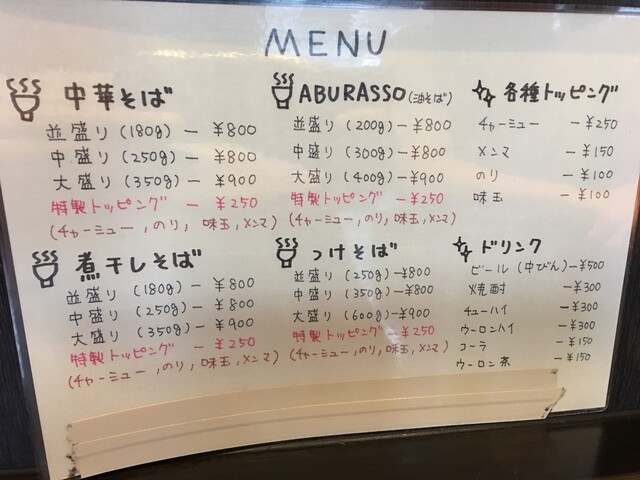 MENU
中華そば
並盛り(180g) — ¥800
中盛り(250g) — ¥800
大盛り(350g) — ¥900
特製トッピング — ¥250
(チャーミュー,のり,味玉,メンマ)
ABURASSO(油そば)
並盛り(200g) — ¥800
中盛り(300g) — ¥800
大盛り(400g) — ¥900
特製トッピング — ¥250
(チャーミュー,のり,味玉,メンマ)
各種トッピング
チャーミュー — ¥250
メンマ — ¥150
のり — ¥100
味玉 — ¥100
煮干しそば
並盛り(180g) — ¥800
中盛り(250g) — ¥800
大盛り(350g) — ¥900
特製トッピング — ¥250
(チャーミュー,のり,味玉,メンマ)
つけそば
並盛り(250g) — ¥800
中盛り(350g) — ¥800
大盛り(600g) — ¥900
特製トッピング — ¥250
(チャーミュー,のり,味玉,メンマ)
ドリンク
ビール(中びん) — ¥500
焼酎 — ¥300
チューハイ — ¥300
ウーロンハイ — ¥300
コーラ — ¥150
ウーロン茶 — ¥150